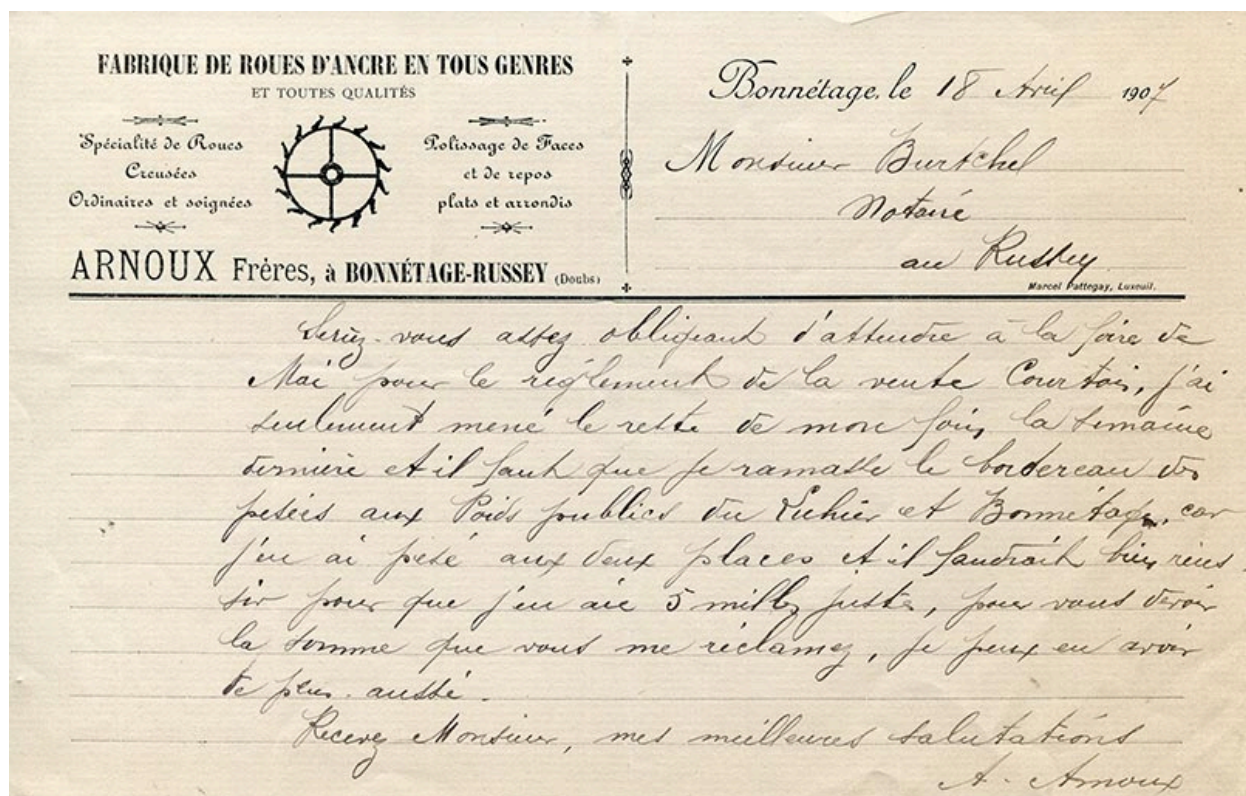 FABRIQUE DE ROUES D'ANCRE EN TOUS GENRES
ET TOUTES QUALITÉS
Spécialité de Roues
Creusées
Ordinaires et soignées
Polissage de Faces
et de repos
plats et arrondis
ARNOUX Frères, à BONNÉTAGE-RUSSEY (Doubs)
Bonnétage, le 18 Avril 1907
Monsieur Burtchel
Notaire
au Russey
Marcel Pattegay, Luxeuil.
Seriez-vous assez obligeant d'attendre à la foire de
Mai pour le règlement de la vente Courtois, j'ai
seulement mené le reste de mon foin la semaine
dernière et il faut que je ramasse le bordereau des
pesées aux Poids publics du Luhier et Bonnétage, car
j'en ai pesé aux deux places et il faudrait bien réus
sir pour que j'en aie 5 mille juste, pour vous devoir
la somme que vous me réclamez, je peux en avoir
de plus aussi.
Recevez Monsieur, mes meilleures salutations
A. Arnoux